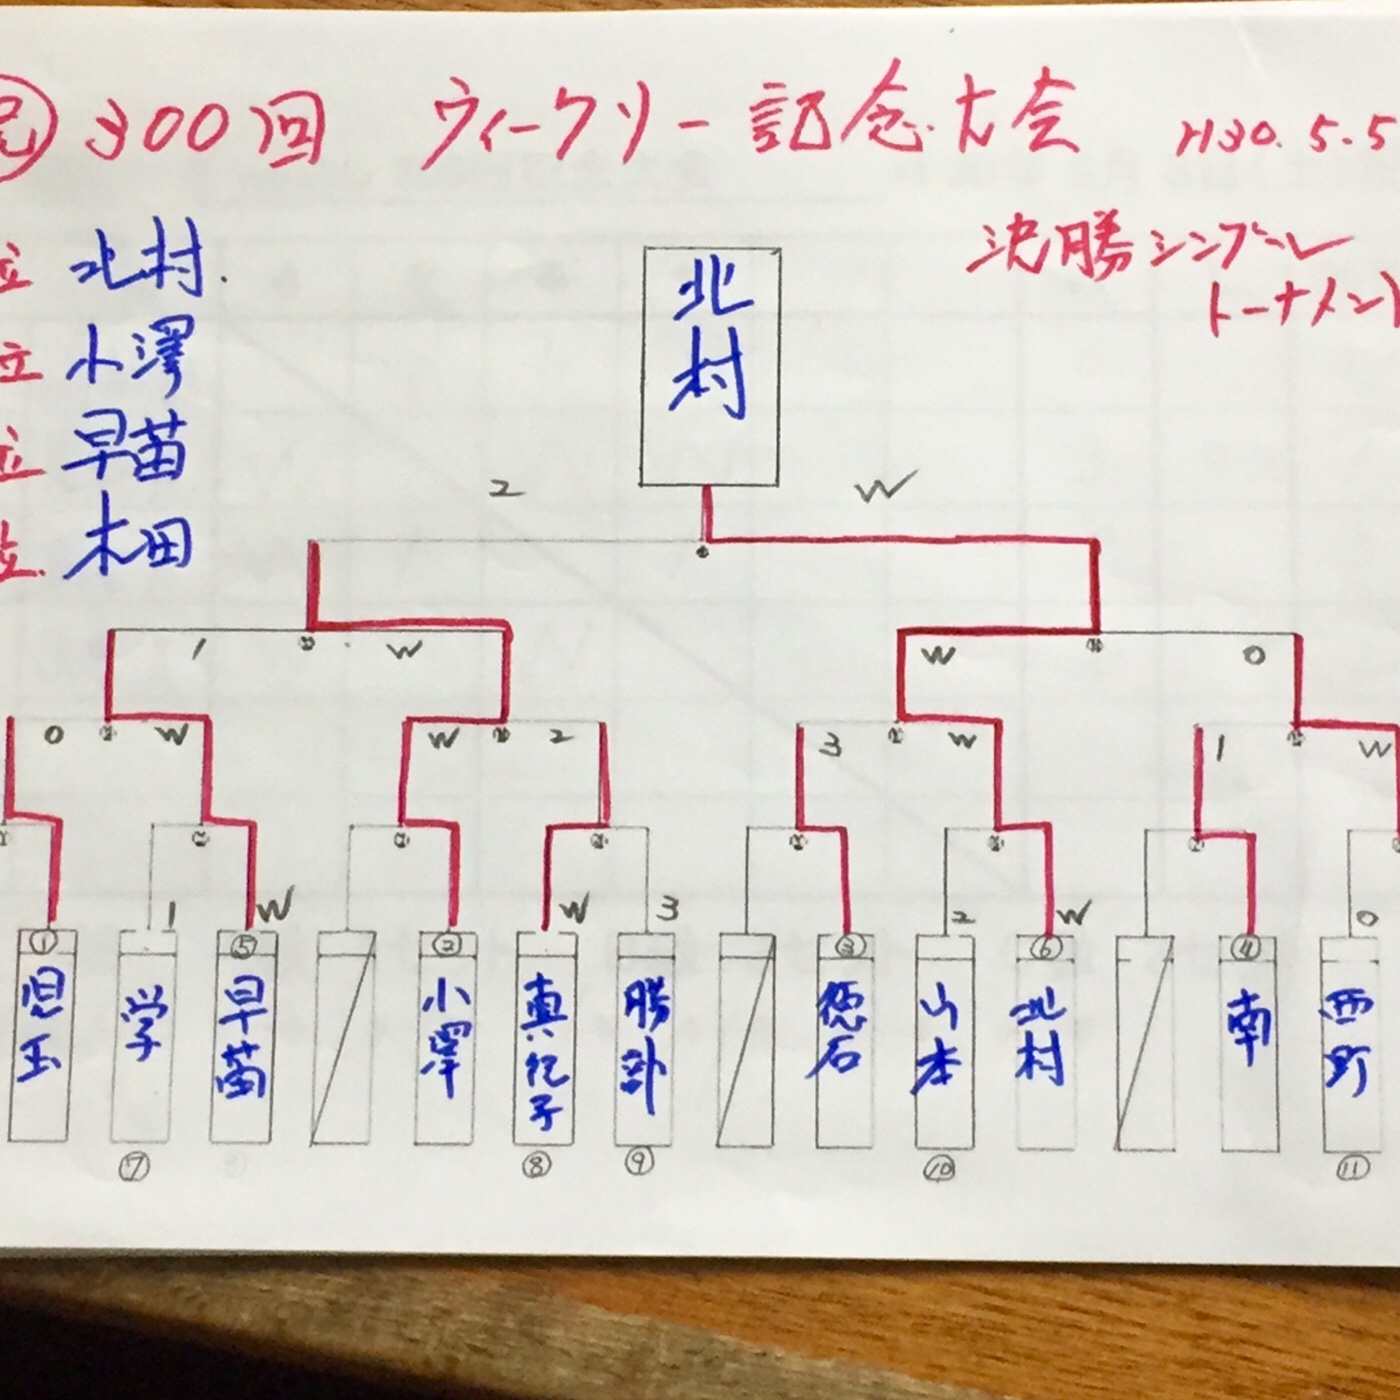 300回 ウィークリー記念大会 H30.5.5
決勝シングル
トーナメント
位 北村.
位 小澤
位 早苗
位 木田
北村
2 W
1 W W 0
0 W W 2 3 W 1 W
1 W W 3 2 W 0
① ⑤ ② ③ ⑥ ④
児玉 学 早苗 小澤 真紀子 勝部 徳石 山本 北村 南 西野
⑦ ⑧ ⑨ ⑩ ⑪